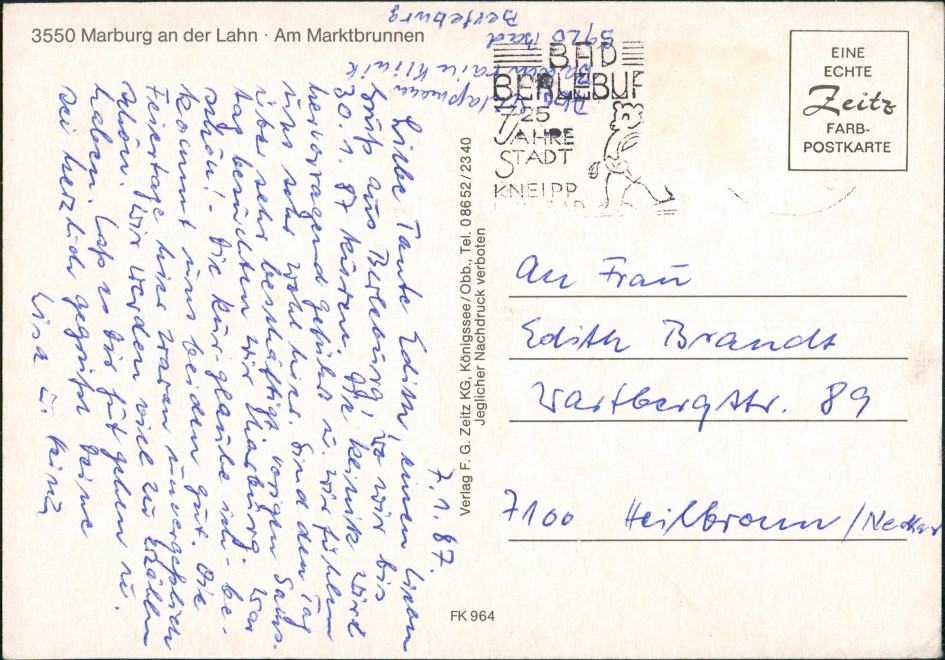 3550 Marburg an der Lahn · Am Marktbrunnen
7.1.87.
Liebe Tante Edith, einen lieben
Gruß aus Berleburg, wo wir bis
30.1.87 kuren. Die Klinik wird
hervorragend geführt u. wir fühlen
uns sehr wohl hier. Sind den Tag
über sehr beschäftigt. vorigen Sams-
tag besuchten wir Marburg. War
schön! Die Kur glaube ich be-
kommt uns beiden gut. Die
Feiertage hier waren unvergeßlich
schön. Wir werden viel zu erzählen
haben. Laß es Dir gut gehen u.
sei herzlich gegrüßt Deine
Lisa u. Heinz
Klinik
5920 Bad
Berleburg
BAD
BERLEBUR
725
JAHRE
STADT
KNEIPP
EINE
ECHTE
Zeitz
FARB-
POSTKARTE
Verlag F. G. Zeitz KG, Königssee/Obb., Tel. 08652/2340
Jeglicher Nachdruck verboten
An Frau
Edith Brandt
Wartbergstr. 89
7100 Heilbronn/Neckar
FK 964